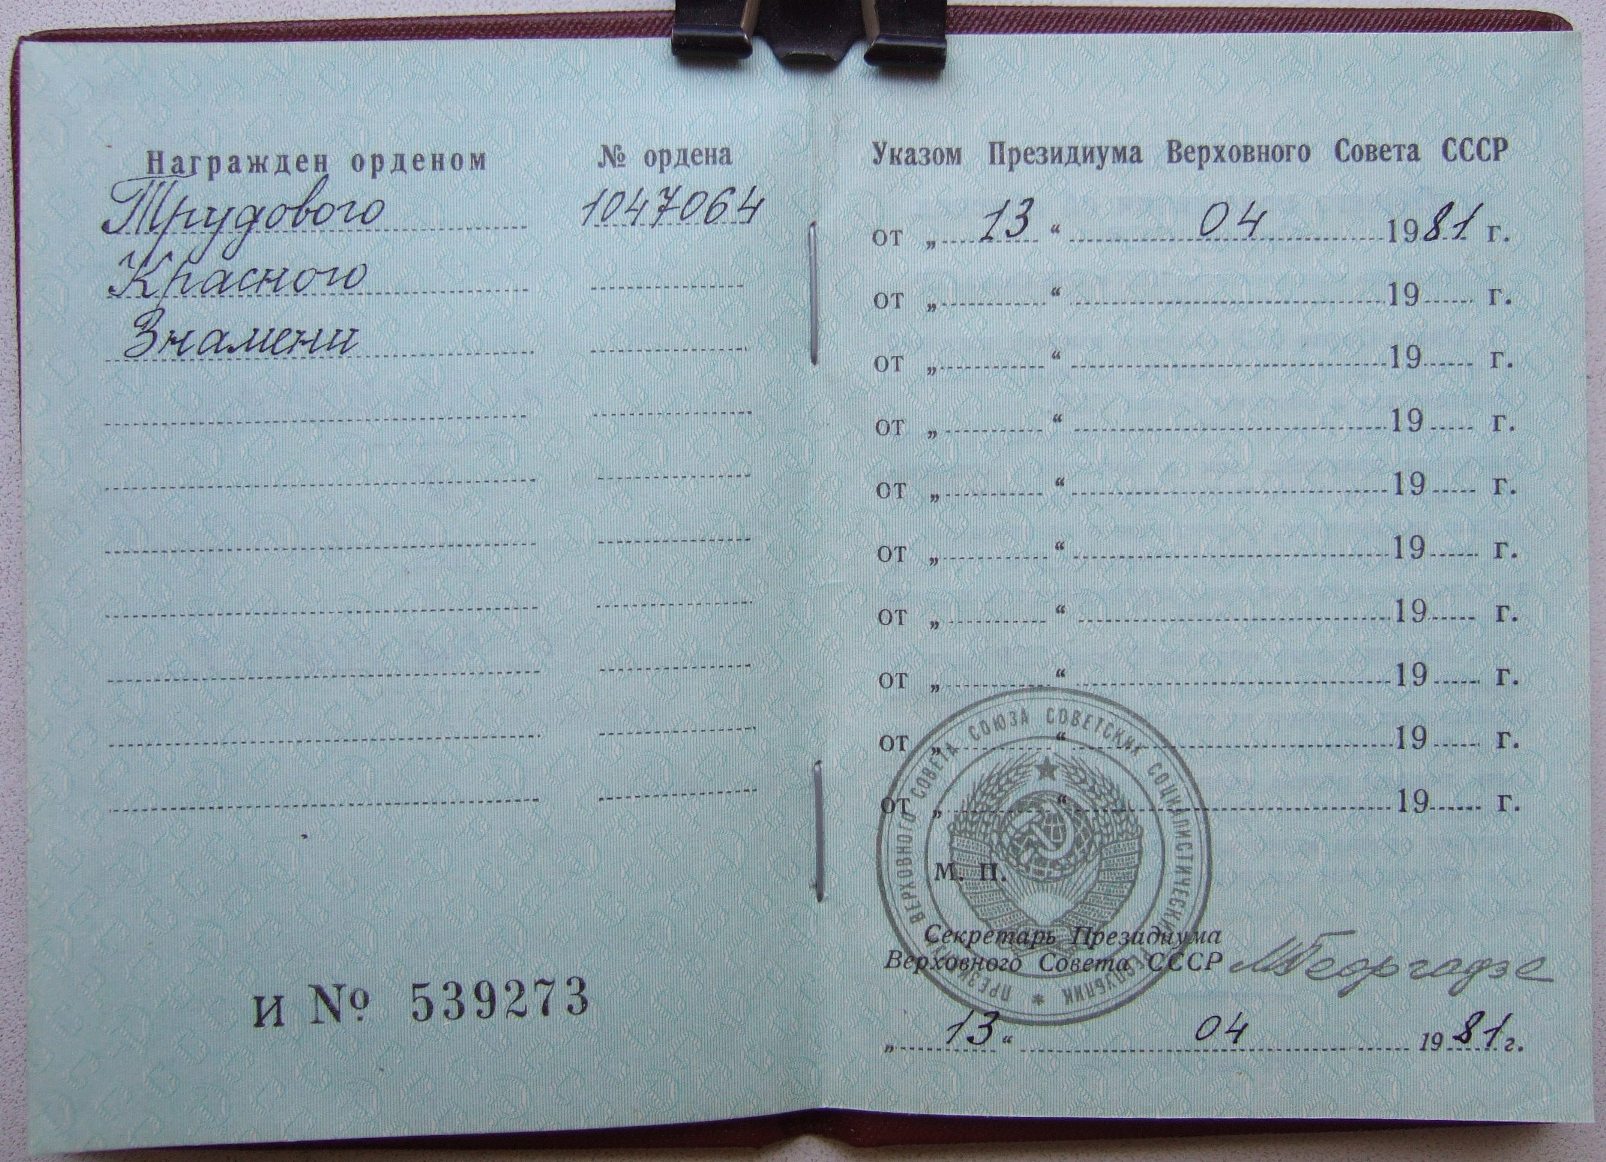 Награжден орденом
№ ордена
Трудового
1047064
Красного
Знамени
И № 539273
Указом Президиума Верховного Совета СССР
от „ 13 “ 04 1981 г.
от „ “ 19 г.
от „ “ 19 г.
от „ “ 19 г.
от „ “ 19 г.
от „ “ 19 г.
от „ “ 19 г.
от „ “ 19 г.
от „ “ 19 г.
от „ “ 19 г.
ПРЕЗИДИУМ ВЕРХОВНОГО СОВЕТА СОЮЗА СОВЕТСКИХ СОЦИАЛИСТИЧЕСКИХ РЕСПУБЛИК
М. П.
Секретарь Президиума
Верховного Совета СССР МГеоргадзе
„ 13 “ 04 1981 г.